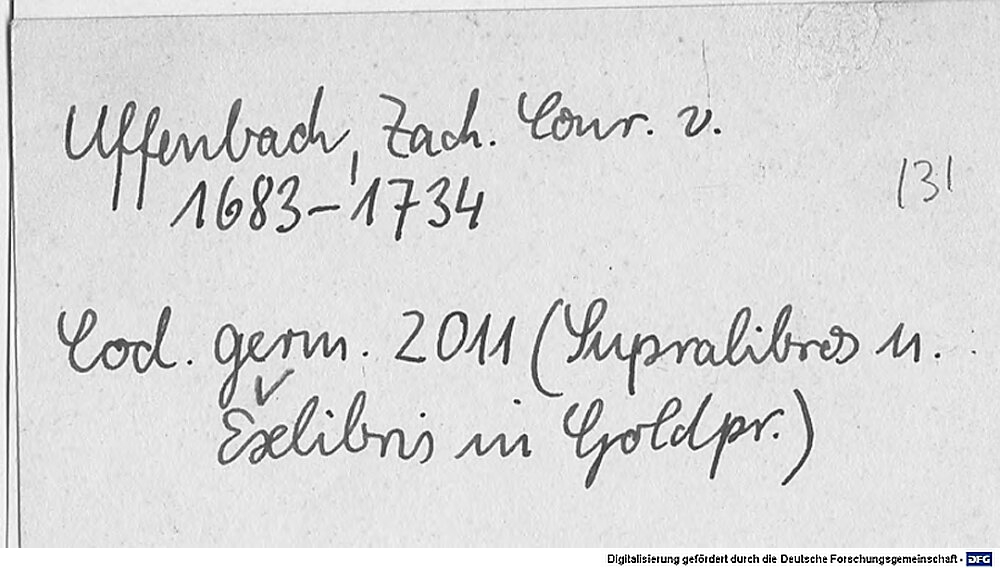 Uffenbach, Zach. Conr. v.
1683-1734
131
Cod. germ. 2011 (Supralibros u.
Exlibris in Goldpr.)
Digitalisierung gefördert durch die Deutsche Forschungsgemeinschaft - DFG